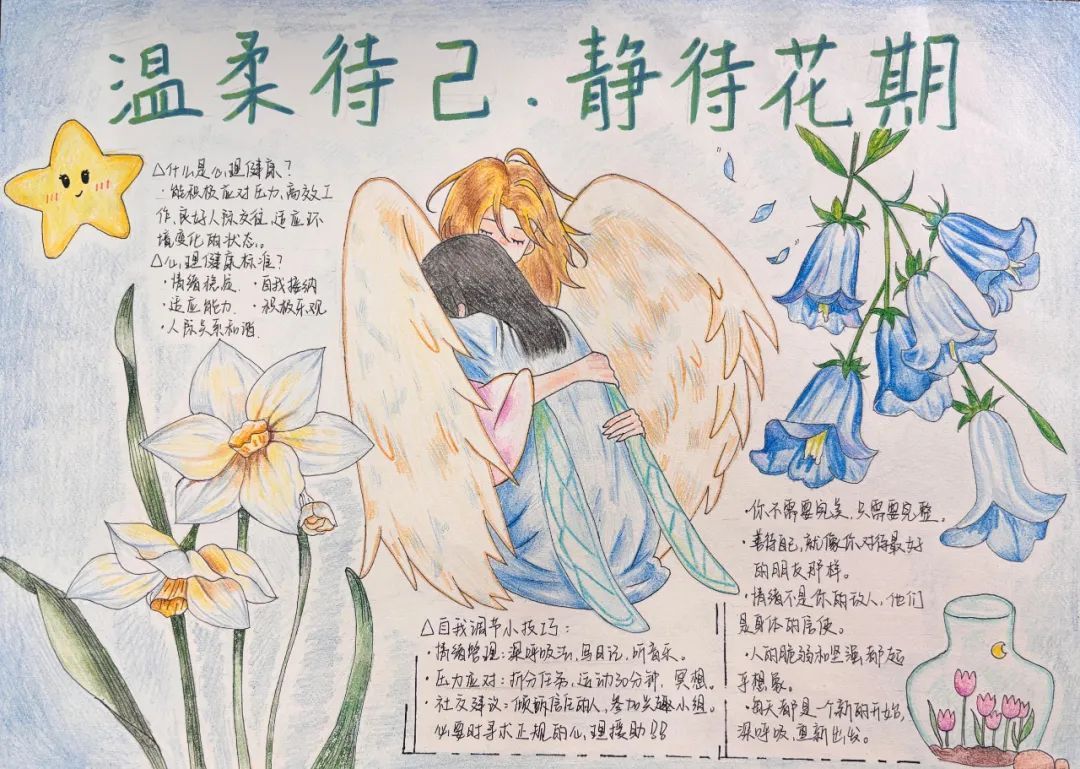 温柔待己·静待花期
△什么是心理健康?
·能积极应对压力,高效工
作,良好人际交往,适应环
境变化的状态。
△心理健康标准?
·情绪稳定 ·自我接纳
·适应能力 ·积极乐观
·人际关系和谐
△自我调节小技巧:
·情绪管理:深呼吸法,写日记,听音乐。
·压力应对:拆分任务,运动30分钟,冥想。
·社交建议:倾诉信任的人,参加兴趣小组。
必要时寻求正规的心理援助!!
·你不需要完美,只需要完整。
·善待自己,就像你对待最好
的朋友那样。
·情绪不是你的敌人,他们
是身体的信使。
·人的脆弱和坚强都超
乎想象。
·每天都是一个新的开始,
深呼吸,重新出发。